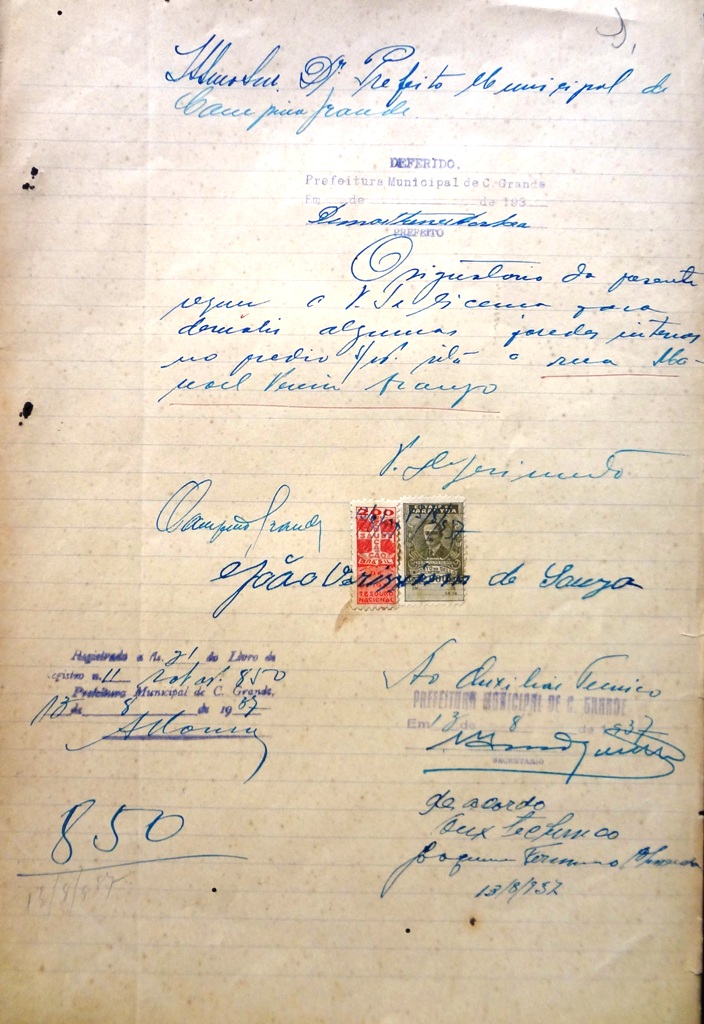 Illmo Snr. Dr. Prefeito Municipal de
Campina Grande.
DEFERIDO.
Prefeitura Municipal de C. Grande
Em de de 193
PREFEITO
O signatario da presente
requer a V. licença para
demolir algumas paredes internas
no predio s/n. sito a rua Ma-
noel Araujo
P. Deferimento
Campina Grande
200
SAUDE
BRASIL
TESOURO
NACIONAL
João de Souza
Registrado a fls. 21 do Livro de
Registro n. 11 sob o n. 850
Prefeitura Municipal de C. Grande,
13 de 8 de 1937
Ao Auxiliar Tecnico
PREFEITURA MUNICIPAL DE C. GRANDE
Em 13 de 8 de 1937
SECRETARIO
de acordo
Aux technico
Joaquim
13/8/937
850
13/8/937